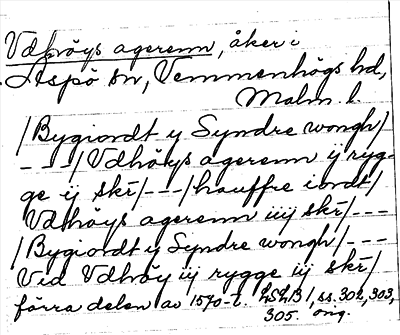 Vdhöys agerenn, åker i
Äspö sn, Vemmenhögs hd,
Malm. l.
/Bygiordt y Syndre wongh/
---/Vdhöys agerenn ÿ ryg-
ge iÿ skr/---/hauffre iordt/
Vdhøys agerenn iiij skr/---
/Bygiordt y Syndre wongh/---
Vid Vdhöy iij rygge iij skr/
förra delen av 1570-t. LSLB 1, ss. 302, 303,
305. orig.